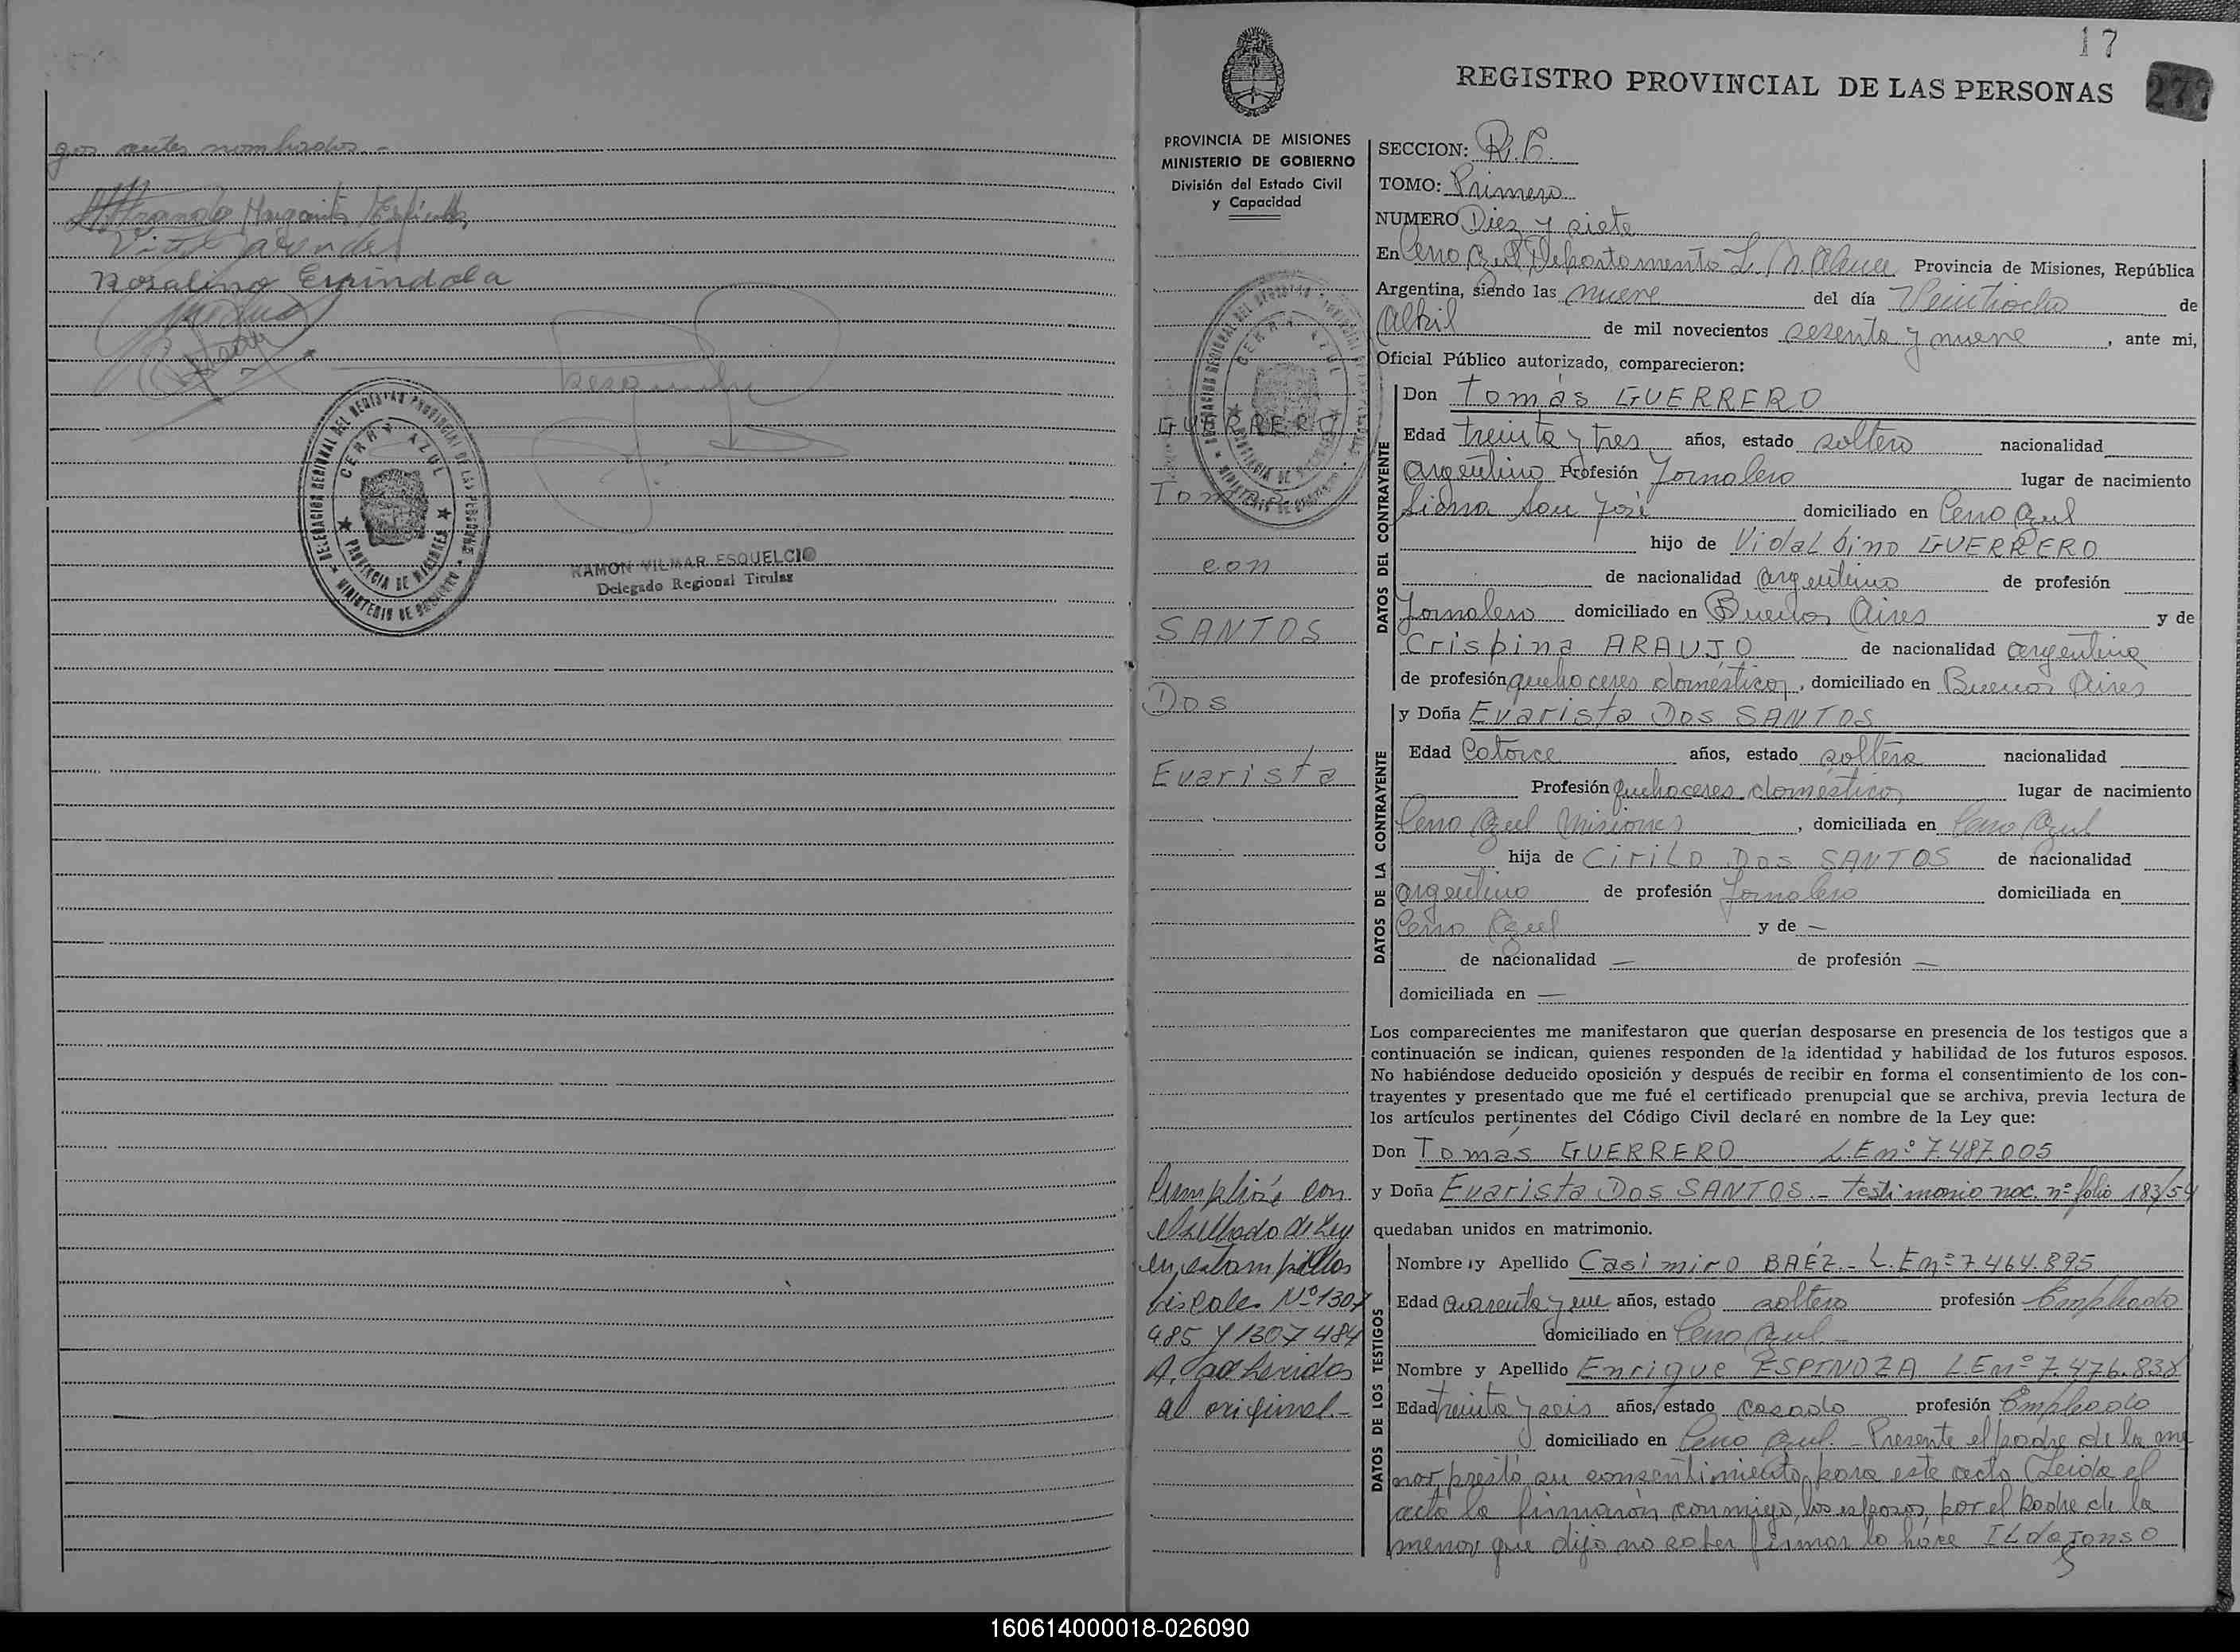 gos antes nombrados.-
Margarita
Vital
Rosalino Espindola
DELEGACION REGIONAL DEL REGISTRO PROVINCIAL DE LAS PERSONAS
CERRO AZUL
PROVINCIA DE MISIONES
MINISTERIO DE GOBIERNO
RAMON VILMAR ESQUELCIO
Delegado Regional Titular
17
REGISTRO PROVINCIAL DE LAS PERSONAS
277
PROVINCIA DE MISIONES
MINISTERIO DE GOBIERNO
División del Estado Civil
y Capacidad
GUERRERO
Tomás
con
SANTOS
Dos
Evarista
Cumplióse con
el sellado de Ley
en estampillas
fiscales Nº 1307
485 y 1307484
A. adheridas
al original-
SECCION: R.C.
TOMO: Primero
NUMERO Diez y siete
En Cerro Azul Departamento L. N. Alem Provincia de Misiones, República
Argentina, siendo las nueve del día Veintiocho de
Abril de mil novecientos sesenta y nueve, ante mi,
Oficial Público autorizado, comparecieron:
DATOS DEL CONTRAYENTE
Don Tomás GUERRERO
Edad treinta y tres años, estado soltero nacionalidad
argentino Profesión Jornalero lugar de nacimiento
Sierra San José domiciliado en Cerro Azul
hijo de Vidalbino GUERRERO
de nacionalidad argentino de profesión
Jornalero domiciliado en Buenos Aires y de
Crispina ARAUJO de nacionalidad argentina
de profesión quehaceres domésticos, domiciliado en Buenos Aires
DATOS DE LA CONTRAYENTE
y Doña Evarista Dos SANTOS
Edad Catorce años, estado soltera nacionalidad
Profesión quehaceres domésticos lugar de nacimiento
Cerro Azul Misiones, domiciliada en Cerro Azul
hija de Cirilo Dos SANTOS de nacionalidad
argentino de profesión Jornalero domiciliada en
Cerro Azul y de —
de nacionalidad — de profesión —
domiciliada en —
Los comparecientes me manifestaron que querían desposarse en presencia de los testigos que a
continuación se indican, quienes responden de la identidad y habilidad de los futuros esposos.
No habiéndose deducido oposición y después de recibir en forma el consentimiento de los con-
trayentes y presentado que me fué el certificado prenupcial que se archiva, previa lectura de
los artículos pertinentes del Código Civil declaré en nombre de la Ley que:
Don Tomás GUERRERO L.E nº 7.487.005
y Doña Evarista Dos SANTOS.- Testimonio nac. nº folio 183/54
quedaban unidos en matrimonio.
DATOS DE LOS TESTIGOS
Nombre y Apellido Casimiro BAÉZ.- L.E nº 7.464.895
Edad cuarenta y un años, estado soltero profesión Empleado
domiciliado en Cerro Azul.-
Nombre y Apellido Enrique ESPINOZA L.E nº 7.476.838
Edad treinta y seis años, estado casado profesión Empleado
domiciliado en Cerro Azul.- Presente el padre de la me
nor, prestó su consentimiento para este acto. Leída el
acta la firmaron conmigo, los esposos, por el padre de la
menor que dijo no saber firmar lo hace ILdefonso
160614000018-026090